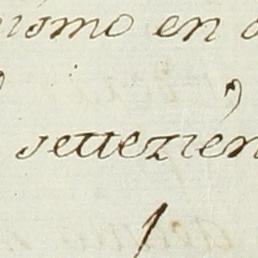 ismo en
settezien